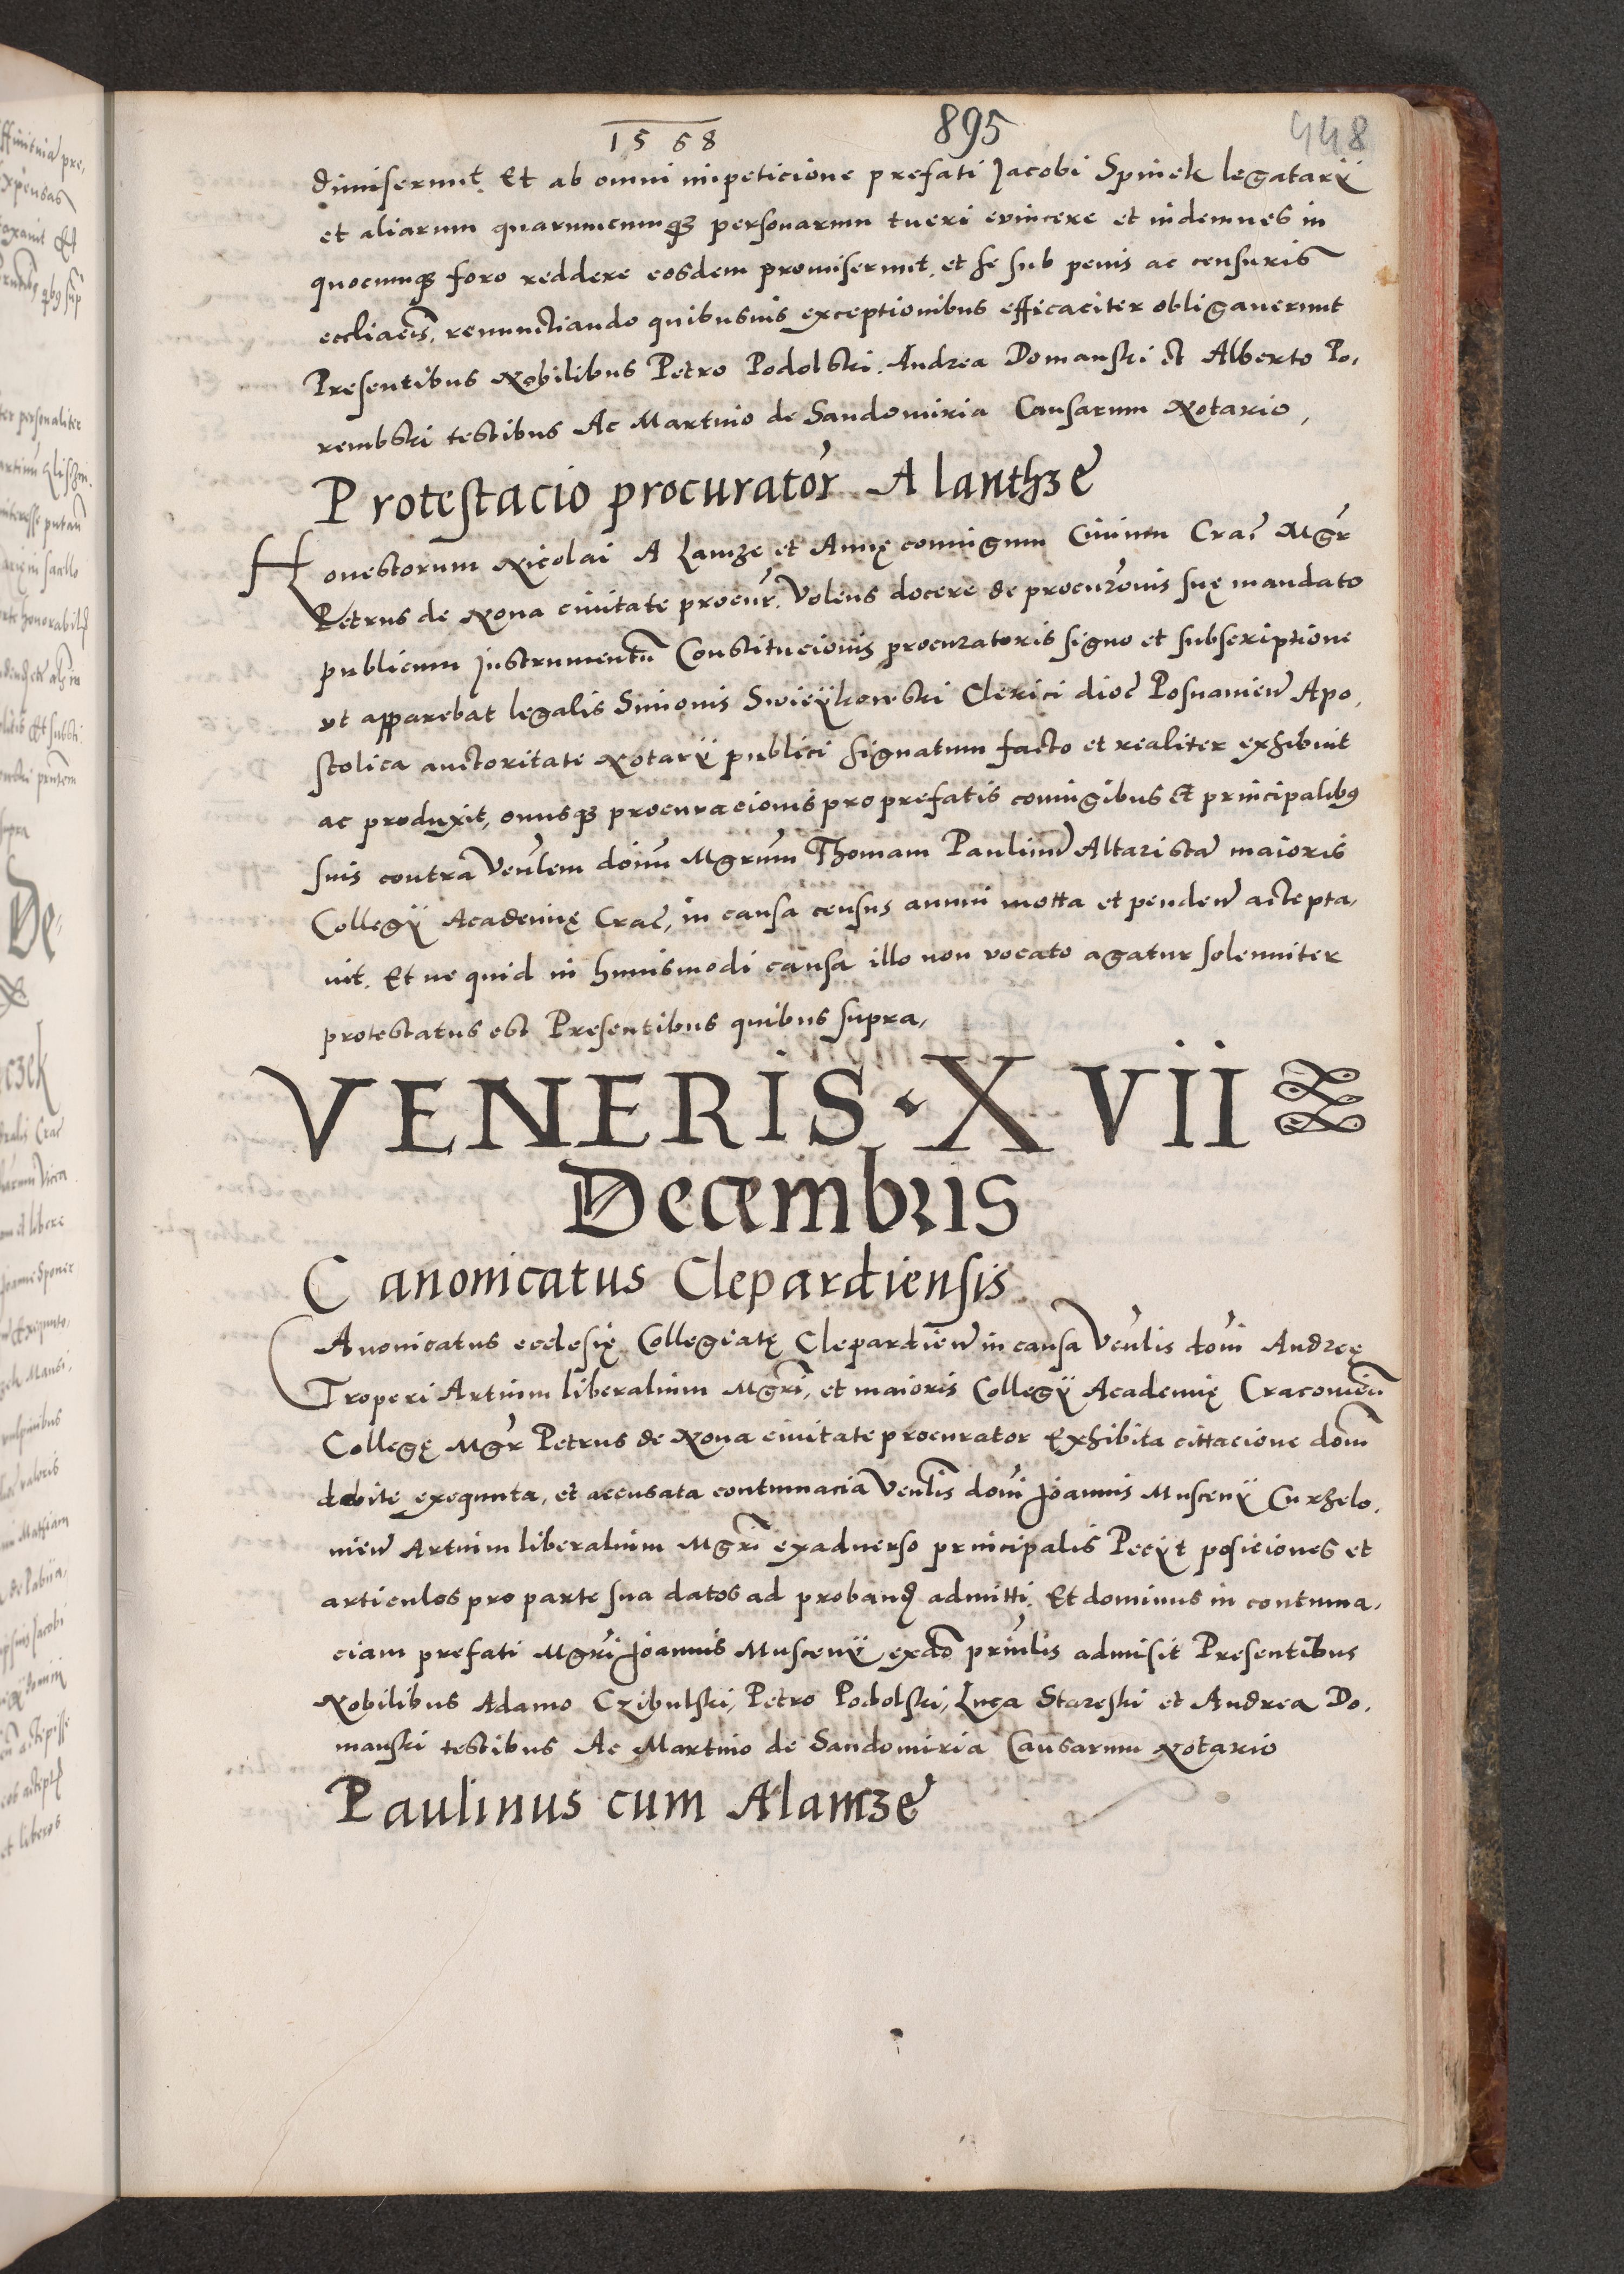 1568 895 448
dimiserunt. Et ab omni impeticione prefati Jacobi Spinek legatarÿ
et aliarum quarumcumqꝫ personarum tueri evincere et indemnes in
quocumqꝫ foro reddere eosdem promiserunt. et se sub penis ac censuris
eccliacis, renunctiando quibusuis exceptionibus efficaciter obligauerunt
Presentibus Nobilibus Petro Podolski. Andrea Domanski et Alberto Po,
rembski testibus Ac Martino de Sandomiria Causarum Notario,
Protestacio procurator Alanthze
Honestorum Nicolai A Lantze et Annę coniugum Ciuium Crac Mgr
Petrus de Noua ciuitate procur. Volens docere de procuronis suę mandato
publicum Instrumentū Constitucionis procuratoris signo et subscriptione
vt apparebat legalis Simonis Swieÿkowski Clerici dioc Posnanien Apo,
stolica auctoritate Notarÿ publici signatum facto et realiter exhibuit
ac produxit, onusqꝫ procuracionis pro prefatis coniugibus Et principalibꝰ
suis contra Venlem domū Mgrum Thomam Paulinū Altaristam maioris
Collegÿ Academię Crac, in causa census annui motta et penden accepta,
uit. Et ne quid in huiusmodi causa illo non vocato agatur solenniter
protestatus est Presentibus quibus supra,
VENERIS · XVII
Decembris
Canonicatus Clepardiensis
CAnonicatus ecclesię Collegiatę Clepardien in causa Venlis domi Andreę
Troperi Artium liberalium Mgri, et maioris Collegÿ Academię Cracouien
Collegę Mgr Petrus de Noua ciuitate procurator Exhibita cittacione dom
debite exequuta, et accusata contumacia Venlis domi Joannis Muscenÿ Curzelo,
uien Artium liberalium Mgri exaduerso principalis Pecÿt posiciones et
articulos pro parte sua datos ad proband admitti. Et dominus in contuma,
ciam prefati Mgri Joannis Muscenÿ exado prinlis admisit Presentibus
Nobilibus Adamo Czibulski, Petro Podolski, Luca Stareski et Andrea Do.
manski testibus Ac Martino de Sandomiria Causarum Notario
Paulinus cum Alamze